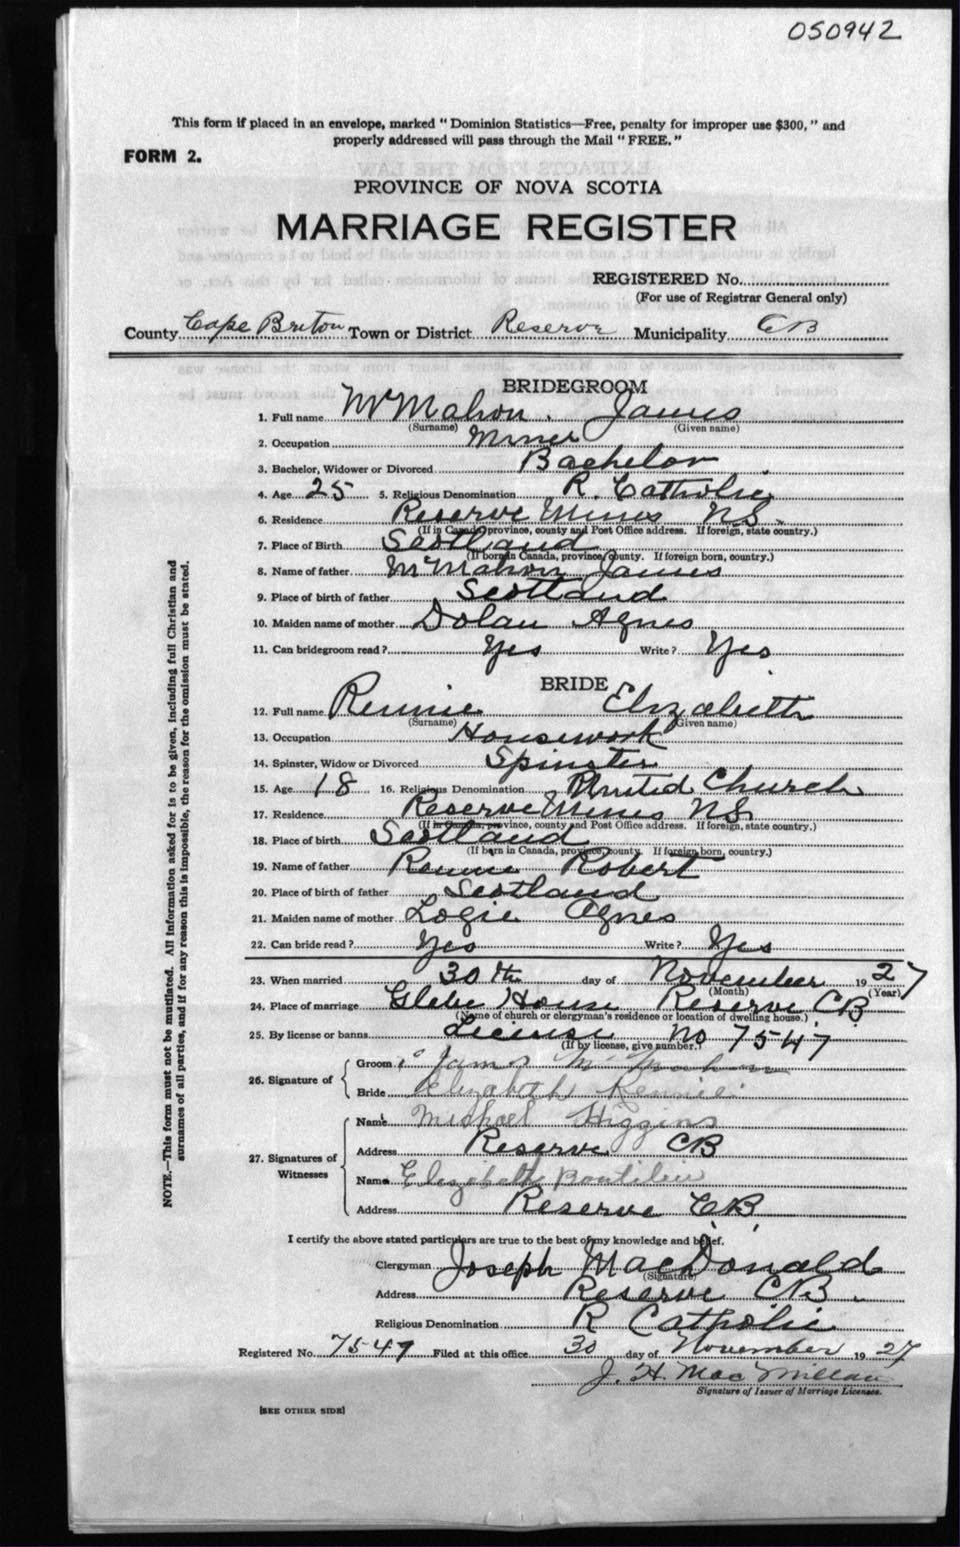 050942
This form if placed in an envelope, marked "Dominion Statistics—Free, penalty for improper use $300," and
properly addressed will pass through the Mail "FREE."
FORM 2.
PROVINCE OF NOVA SCOTIA
MARRIAGE REGISTER
REGISTERED No.
(For use of Registrar General only)
County Cape Breton Town or District Reserve Municipality CB
BRIDEGROOM
1. Full name McMahon. James
(Surname) (Given name)
2. Occupation Miner
3. Bachelor, Widower or Divorced Bachelor
4. Age 25 5. Religious Denomination R. Catholic
6. Residence Reserve Mines NS.
(If in Canada, province, county and Post Office address. If foreign, state country.)
7. Place of Birth Scotland
(If born in Canada, province, county. If foreign born, country.)
8. Name of father McMahon James
9. Place of birth of father Scotland
10. Maiden name of mother Dolan Agnes
11. Can bridegroom read? Yes Write? Yes
BRIDE
12. Full name Rennie Elizabeth
(Surname) (Given name)
13. Occupation Housework
14. Spinster, Widow or Divorced Spinster
15. Age 18 16. Religious Denomination United Church
17. Residence Reserve Mines NS.
(If in Canada, province, county and Post Office address. If foreign, state country.)
18. Place of birth Scotland
(If born in Canada, province, county. If foreign born, country.)
19. Name of father Rennie Robert
20. Place of birth of father Scotland
21. Maiden name of mother Logie Agnes
22. Can bride read? Yes Write? Yes
23. When married 30th day of November 1927
(Month) (Year)
24. Place of marriage Glebe House Reserve CB.
(Name of church or clergyman's residence or location of dwelling house.)
25. By license or banns License No 7547
(If by license, give number.)
26. Signature of Groom James McMahon
Bride Elizabeth Rennie
27. Signatures of Witnesses Name Michael Higgins
Address Reserve CB
Name Elizabeth Boutilier
Address Reserve CB
I certify the above stated particulars are true to the best of my knowledge and belief.
Clergyman Joseph MacDonald
(Signature)
Address Reserve CB.
Religious Denomination R Catholic
Registered No. 7547 Filed at this office 30 day of November 1927
J. H. MacMillan
Signature of Issuer of Marriage Licenses.
[SEE OTHER SIDE]
NOTE.—This form must not be mutilated. All information asked for is to be given, including full Christian and
surnames of all parties, and if for any reason this is impossible, the reason for the omission must be stated.